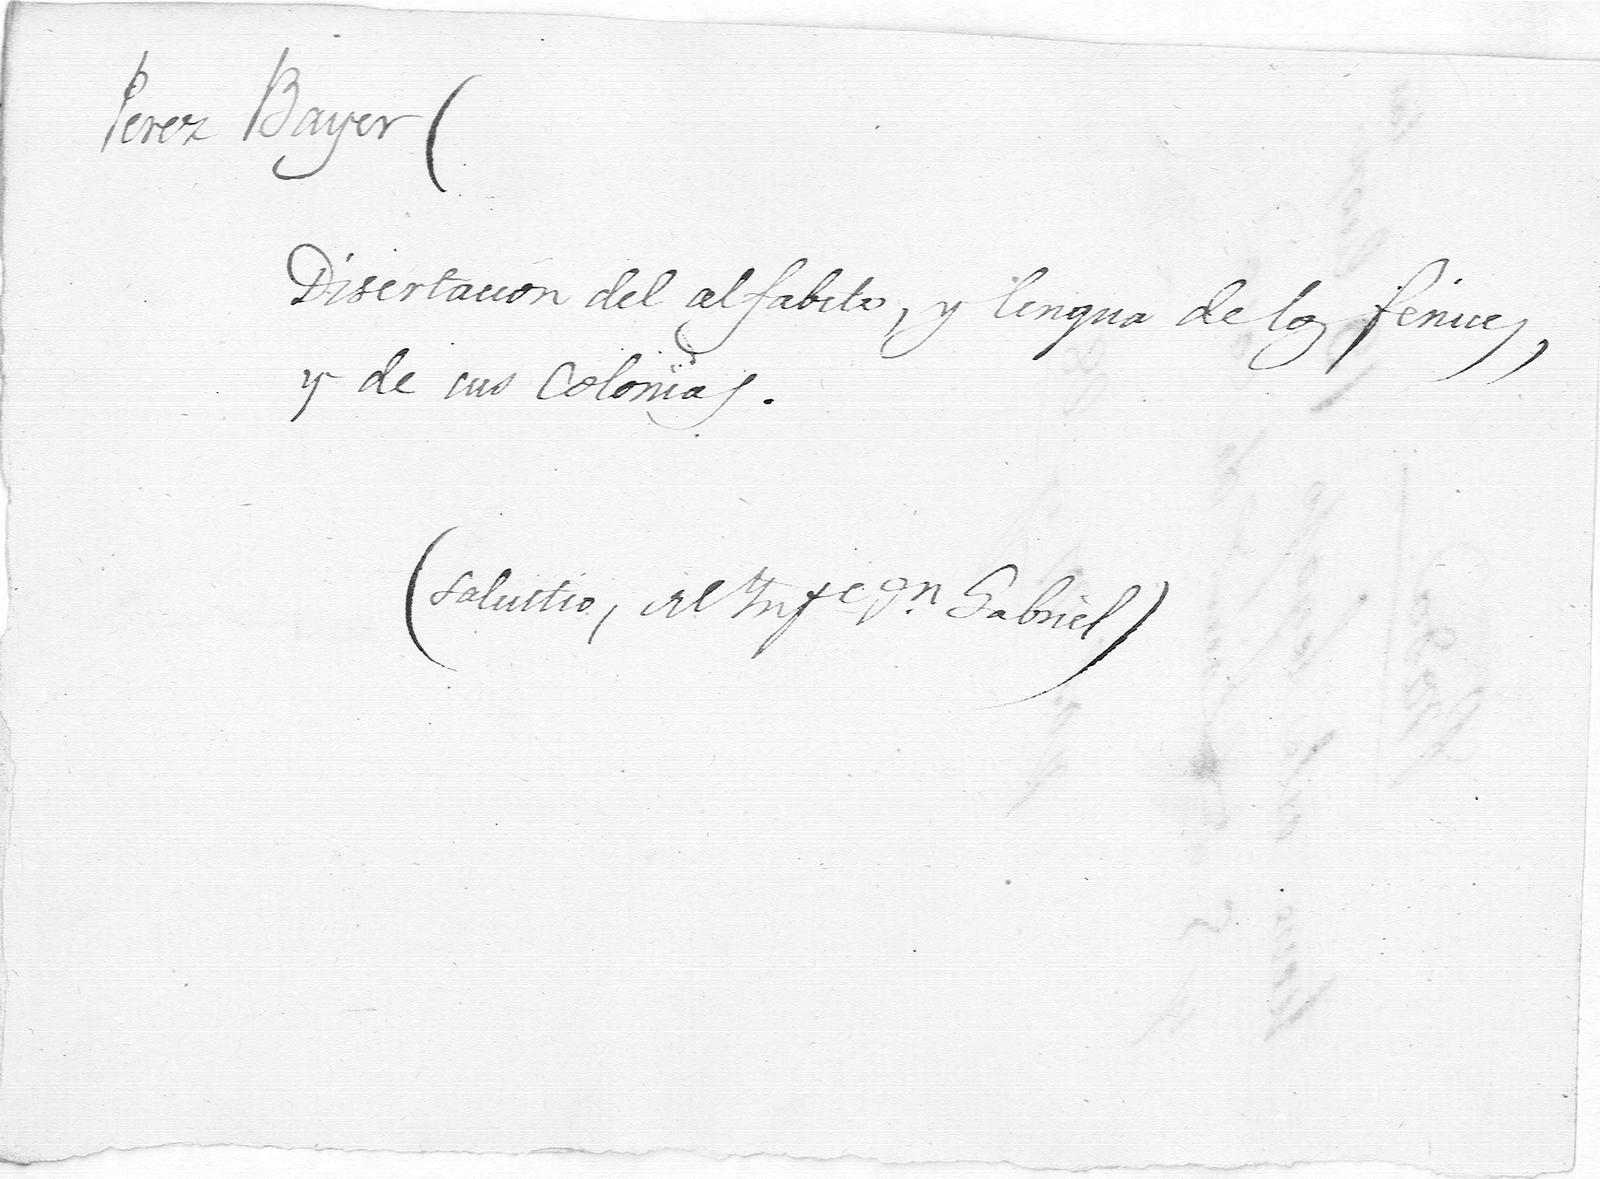 Perez Bayer (
Disertacion del alfabeto, y lengua de los fenices,
y de sus Colonias.
(Salustio, del Infte Dn Gabriel)